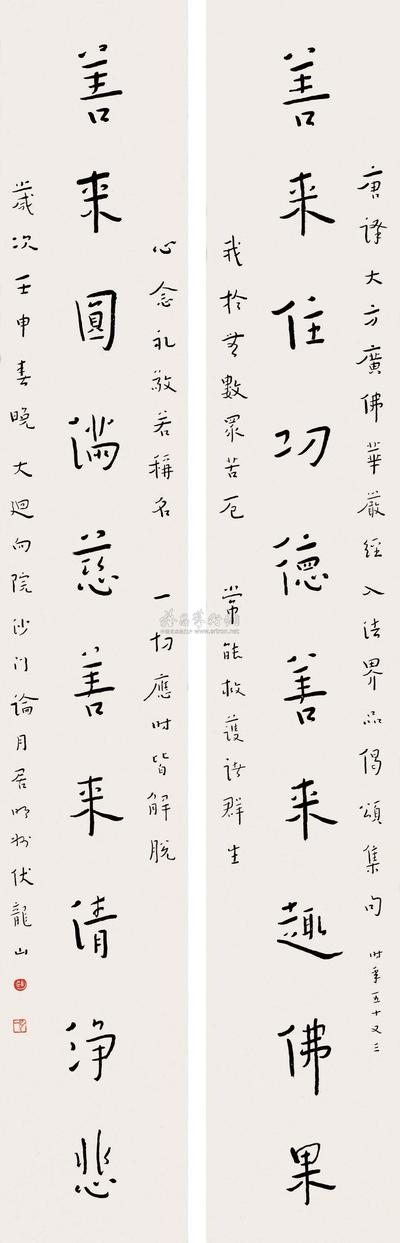 唐譯大方廣佛華嚴經入法界品偈頌集句 时年五十又三
善来住功德善来趣佛果
我於無數眾苦厄 常能救護諸群生
心念礼敬若稱名 一切應时皆解脫
善来圓滿慈善来清淨悲
歲次壬申春晚大迴向院沙门論月居明州伏龍山